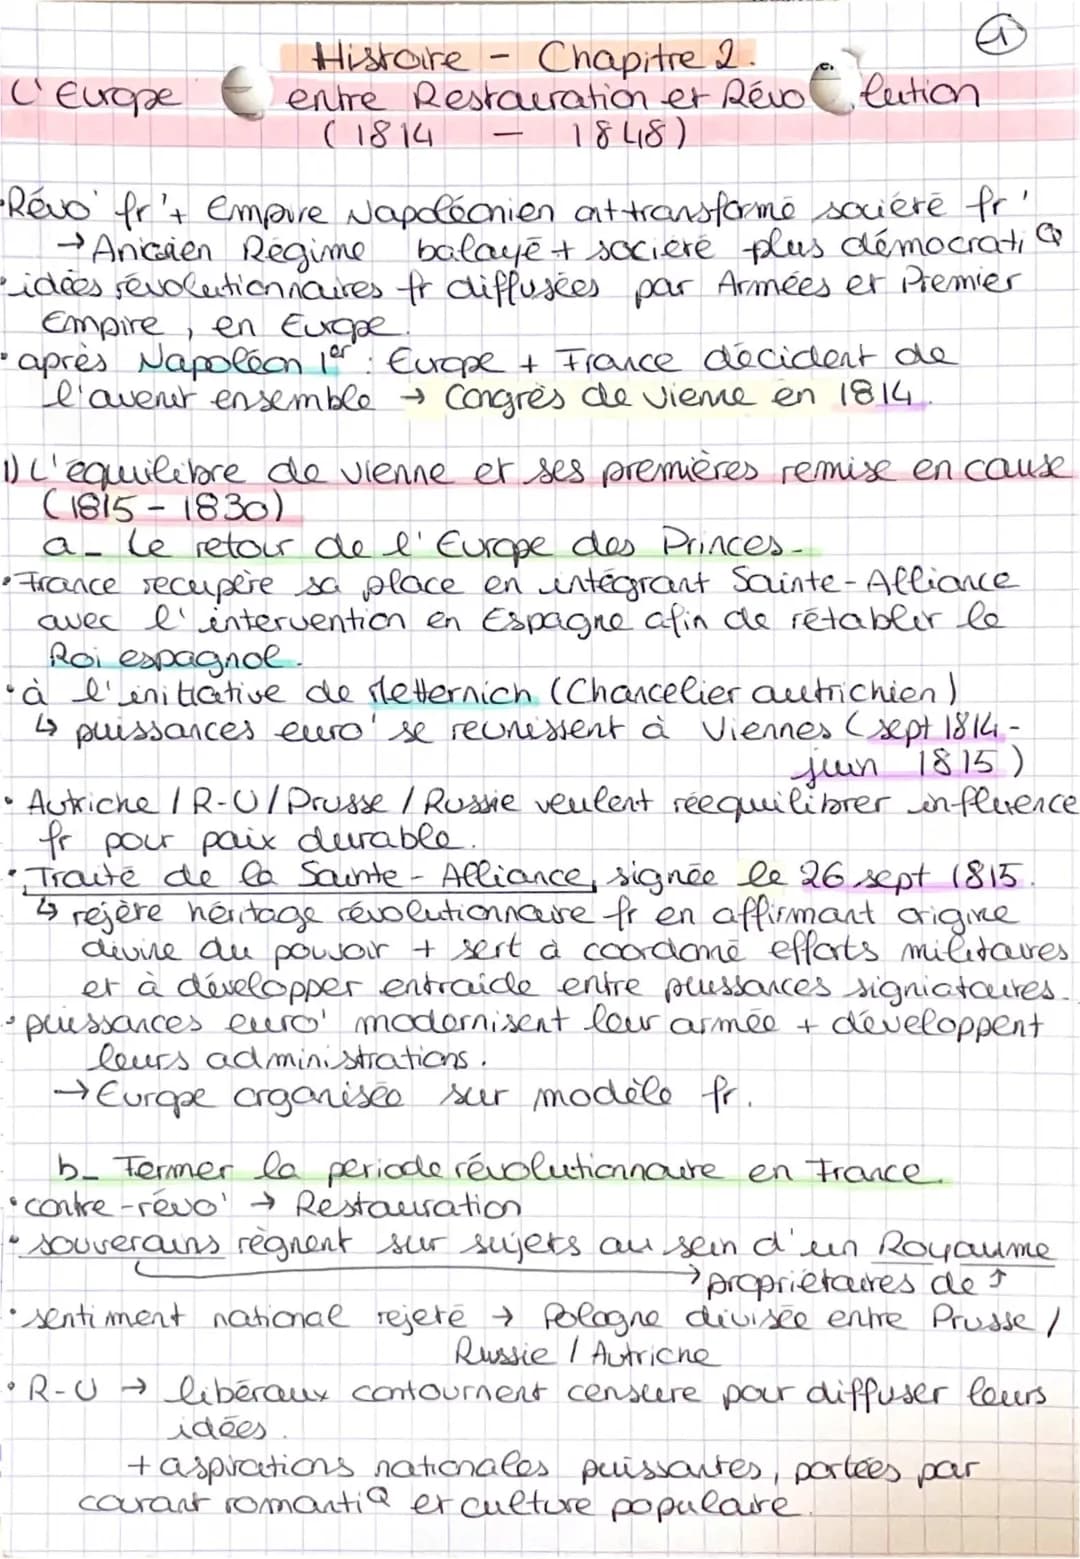 1
Histoire - Chapitre 2.
L'Europe entre Restauration et Révolution
(1814 - 1848)
•Révo' fr' + Empire Napoléonien ont transformé société fr'
→ Ancien Régime balayé + société plus démocratiQ
•idées révolutionnaires fr diffusées par Armées et Premier
Empire, en Europe.
•après Napoléon 1er : Europe + France décident de
l'avenir ensemble → Congrès de Vienne en 1814.
1) L'équilibre de Vienne et ses premières remise en cause
(1815 - 1830)
a_ Le retour de l'Europe des Princes.
•France recupère sa place en intégrant Sainte-Alliance
avec l'intervention en Espagne afin de rétablir le
Roi espagnol.
•à l'initiative de Metternich (Chancelier autrichien)
↳ puissances euro' se reunissent à Viennes (sept 1814 -
juin 1815)
• Autriche / R-U / Prusse / Russie veulent rééquilibrer influence
fr pour paix durable.
• Traité de la Sainte-Alliance, signée le 26 sept 1815.
↳ rejère héritage révolutionnaire fr en affirmant origine
divine du pouvoir + sert à coordonné efforts militaires
et à développer entraide entre puissances signiataires.
•puissances euro' modernisent leur armée + développent
leurs administrations.
→ Europe organisée sur modèle fr.
b_ Fermer la periode révolutionnaire en France.
•contre-révo' → Restauration
• souverains règnent sur sujets au sein d'un Royaume
→ propriétaires de ↑
•sentiment national rejeté → Pologne divisée entre Prusse /
Russie / Autriche
• R-U → libéraux contournent censure pour diffuser leurs
idées.
+ aspirations nationales puissantes, portées par
courant romantiQ et culture populaire.